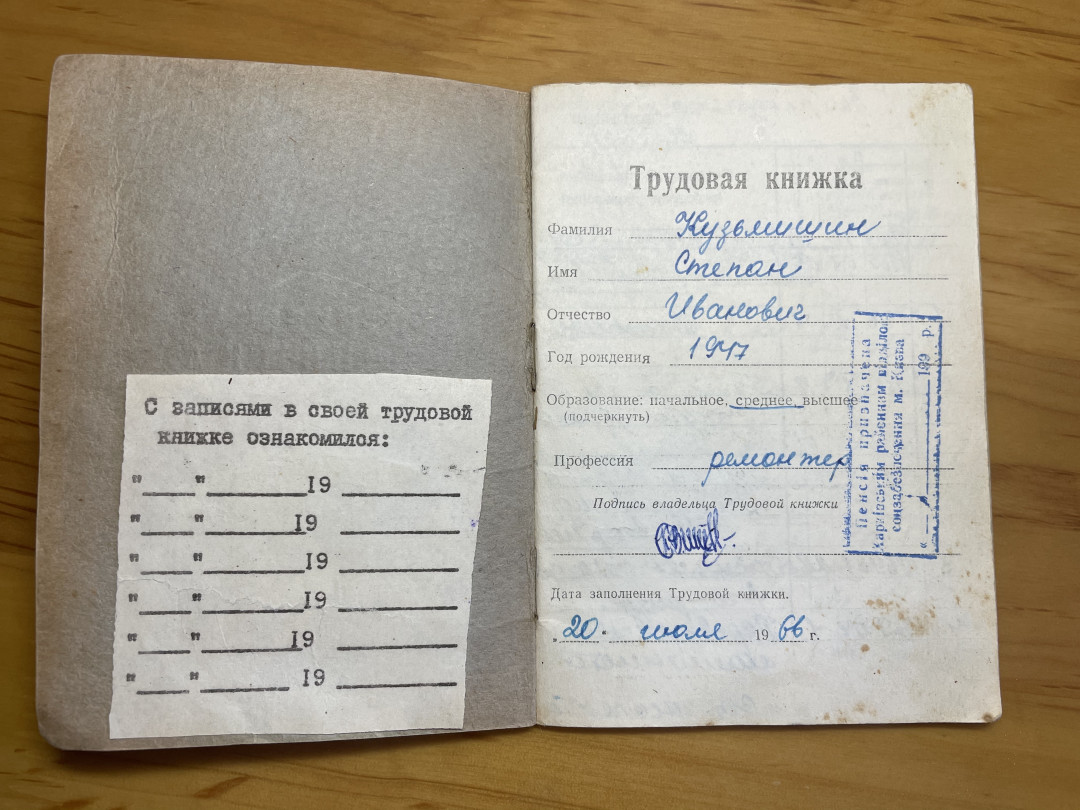 С записями в своей трудовой
книжке ознакомился:
"___"_______19 ________
"___"_______19 ________
"___"_______19 ________
"___"_______19 ________
"___"_______19 ________
"___"_______19 ________
Трудовая книжка
Фамилия Кузьмишин
Имя Степан
Отчество Иванович
Год рождения 1947
Образование: начальное, среднее, высшее
(подчеркнуть)
Профессия ремонтер
Подпись владельца Трудовой книжки
Дата заполнения Трудовой книжки.
"20" июля 1966 г.
Пенсія призначена
Харківським районним відділом
соцзабезпечення м. Києва
"___"_______199 р.